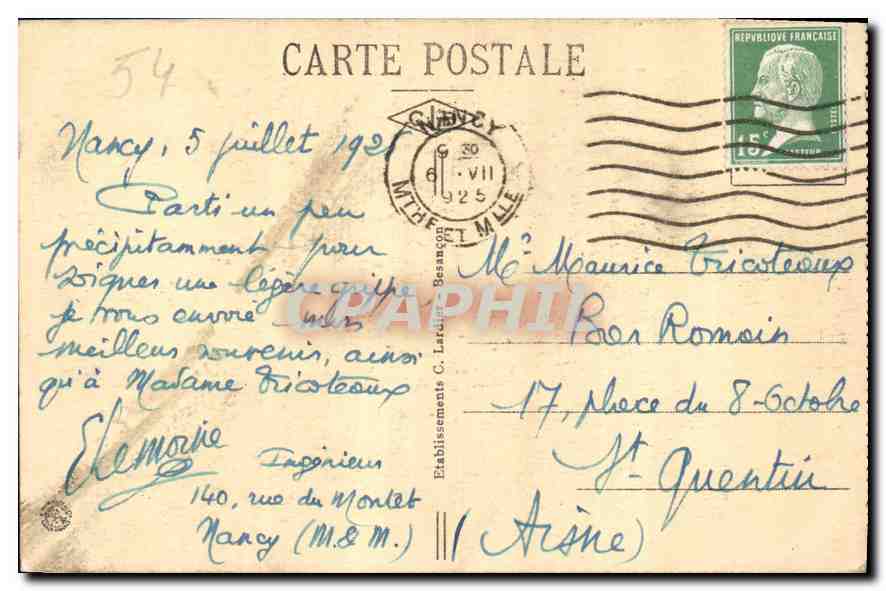 54
CARTE POSTALE
REPUBLIQUE FRANÇAISE
15c
PASTEUR
NANCY
9 30
6 ·VII
925
MTHE ET MLLE
Nancy, 5 juillet 192
Parti un peu
précipitamment pour
soigner une légère grippe,
je vous envoie mes
meilleurs souvenirs, ainsi
qu'à Madame Tricoteaux
Elemoine
Ingénieur
140, rue du Montet
Nancy (M.&M.)
Etablissements C. Lardier, Besançon
Mr Maurice Tricoteaux
Bar Romain
17, place du 8-Octobre
St Quentin
(Aisne)
CPAPHIL